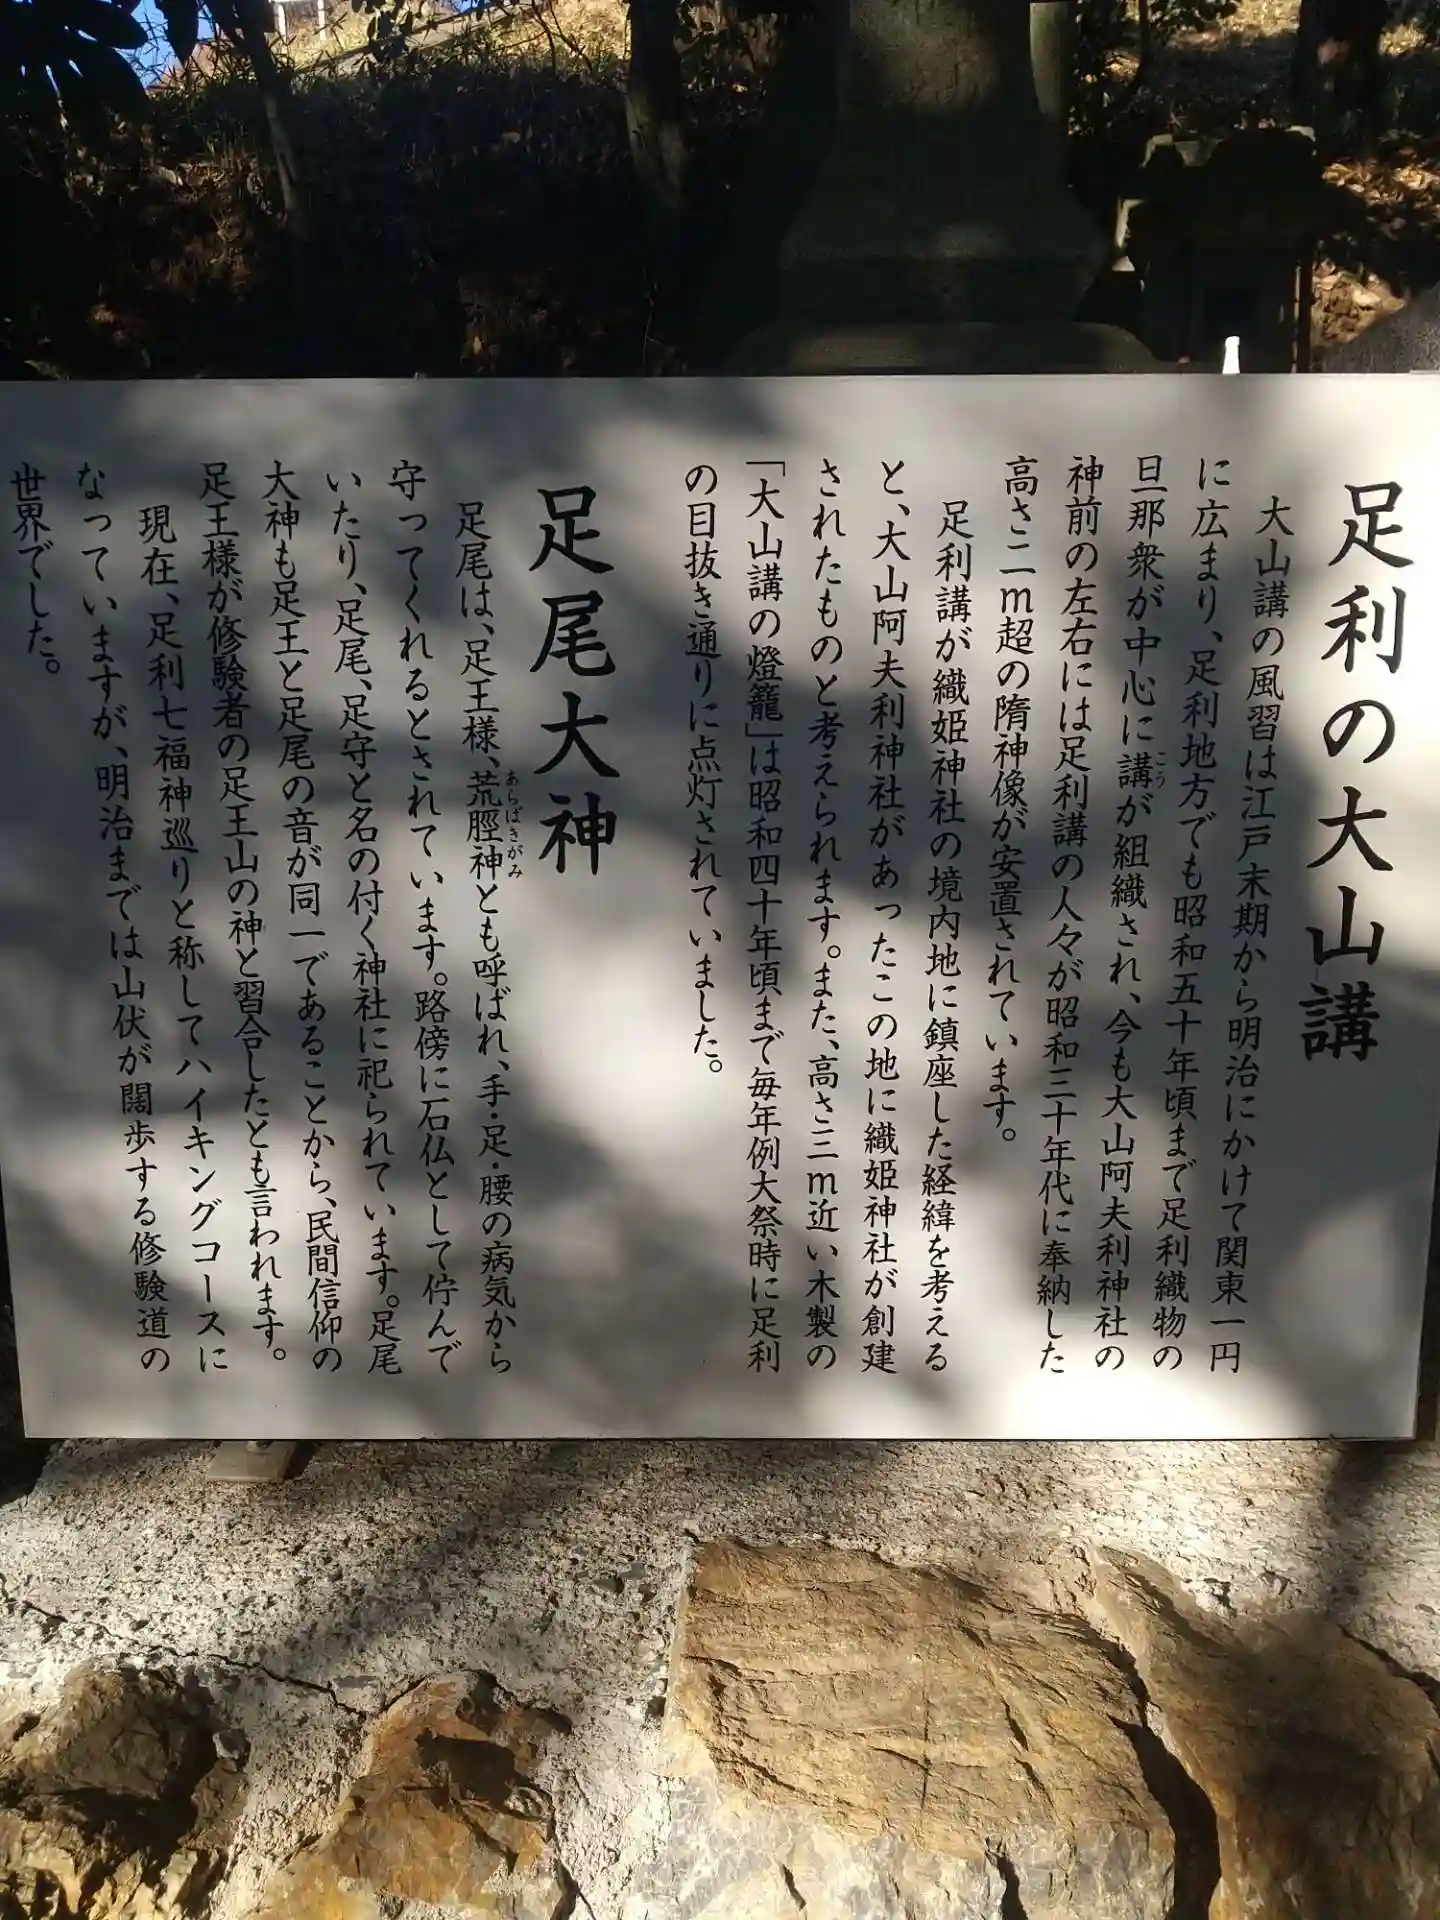 足利の大山講
大山講の風習は江戸末期から明治にかけて関東一円
に広まり、足利地方でも昭和五十年頃まで足利織物の
旦那衆が中心に講が組織され、今も大山阿夫利神社の
こう
神前の左右には足利講の人々が昭和三十年代に奉納した
高さ二m超の隋神像が安置されています。
足利講が織姫神社の境内地に鎮座した経緯を考える
と、大山阿夫利神社があったこの地に織姫神社が創建
されたものと考えられます。また、高さ三m近い木製の
「大山講の燈籠」は昭和四十年頃まで毎年例大祭時に足利
の目抜き通りに点灯されていました。
足尾大神
足尾は、足王様、荒脛神とも呼ばれ、手・足・腰の病気から
あらばきがみ
守ってくれるとされています。路傍に石仏として佇んで
いたり、足尾、足守と名の付く神社に祀られています。足尾
大神も足王と足尾の音が同一であることから、民間信仰の
足王様が修験者の足王山の神と習合したとも言われます。
現在、足利七福神巡りと称してハイキングコースに
なっていますが、明治までは山伏が闊歩する修験道の
世界でした。